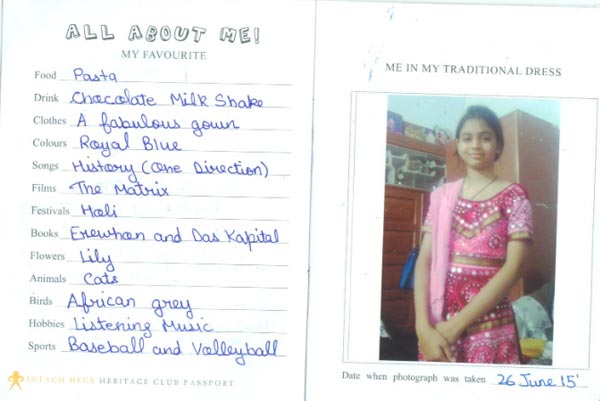 ALL ABOUT ME!
MY FAVOURITE
Food Pasta
Drink Chocolate Milk Shake
Clothes A fabulous gown
Colours Royal Blue
Songs History (One Direction)
Films The Matrix
Festivals Holi
Books Erewhon and Das Kapital
Flowers Lily
Animals Cats
Birds African grey
Hobbies Listening Music
Sports Baseball and Volleyball
INTACH HECS HERITAGE CLUB PASSPORT
ME IN MY TRADITIONAL DRESS
Date when photograph was taken 26 June 15'